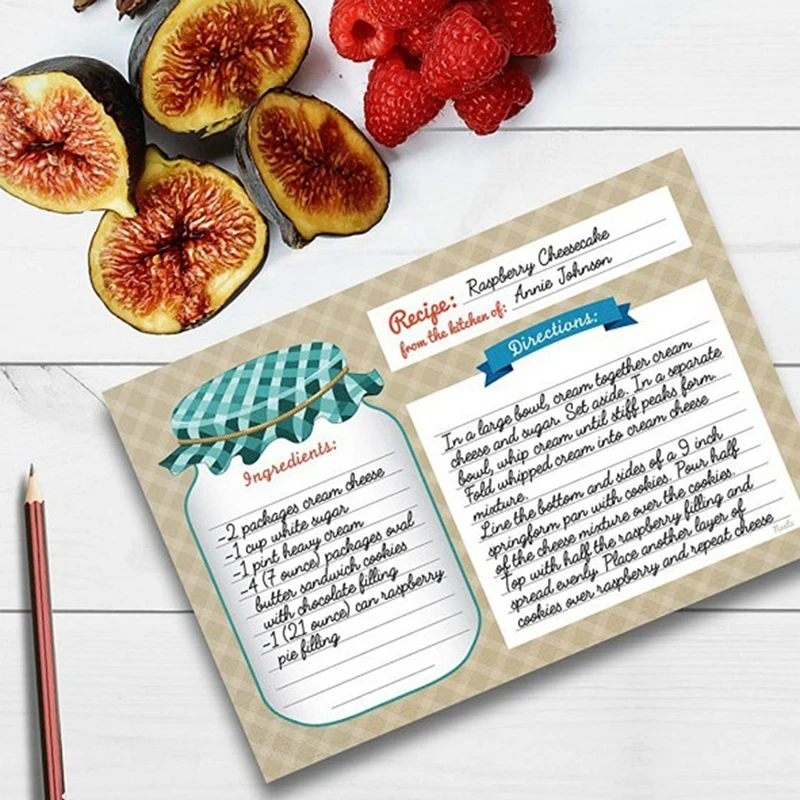 Recipe: Raspberry Cheesecake
from the kitchen of: Annie Johnson
Ingredients:
-2 packages cream cheese
-1 cup white sugar
-1 pint heavy cream
-4 (7 ounce) packages oval
butter sandwich cookies
with chocolate filling
-1 (21 ounce) can raspberry
pie filling
Directions:
In a large bowl, cream together cream
cheese and sugar. Set aside. In a separate
bowl, whip cream until stiff peaks form.
Fold whipped cream into cream cheese
mixture.
Line the bottom and sides of a 9 inch
springform pan with cookies. Pour half
of the cheese mixture over the cookies.
Top with half the raspberry filling and
spread evenly. Place another layer of
cookies over raspberry and repeat cheese